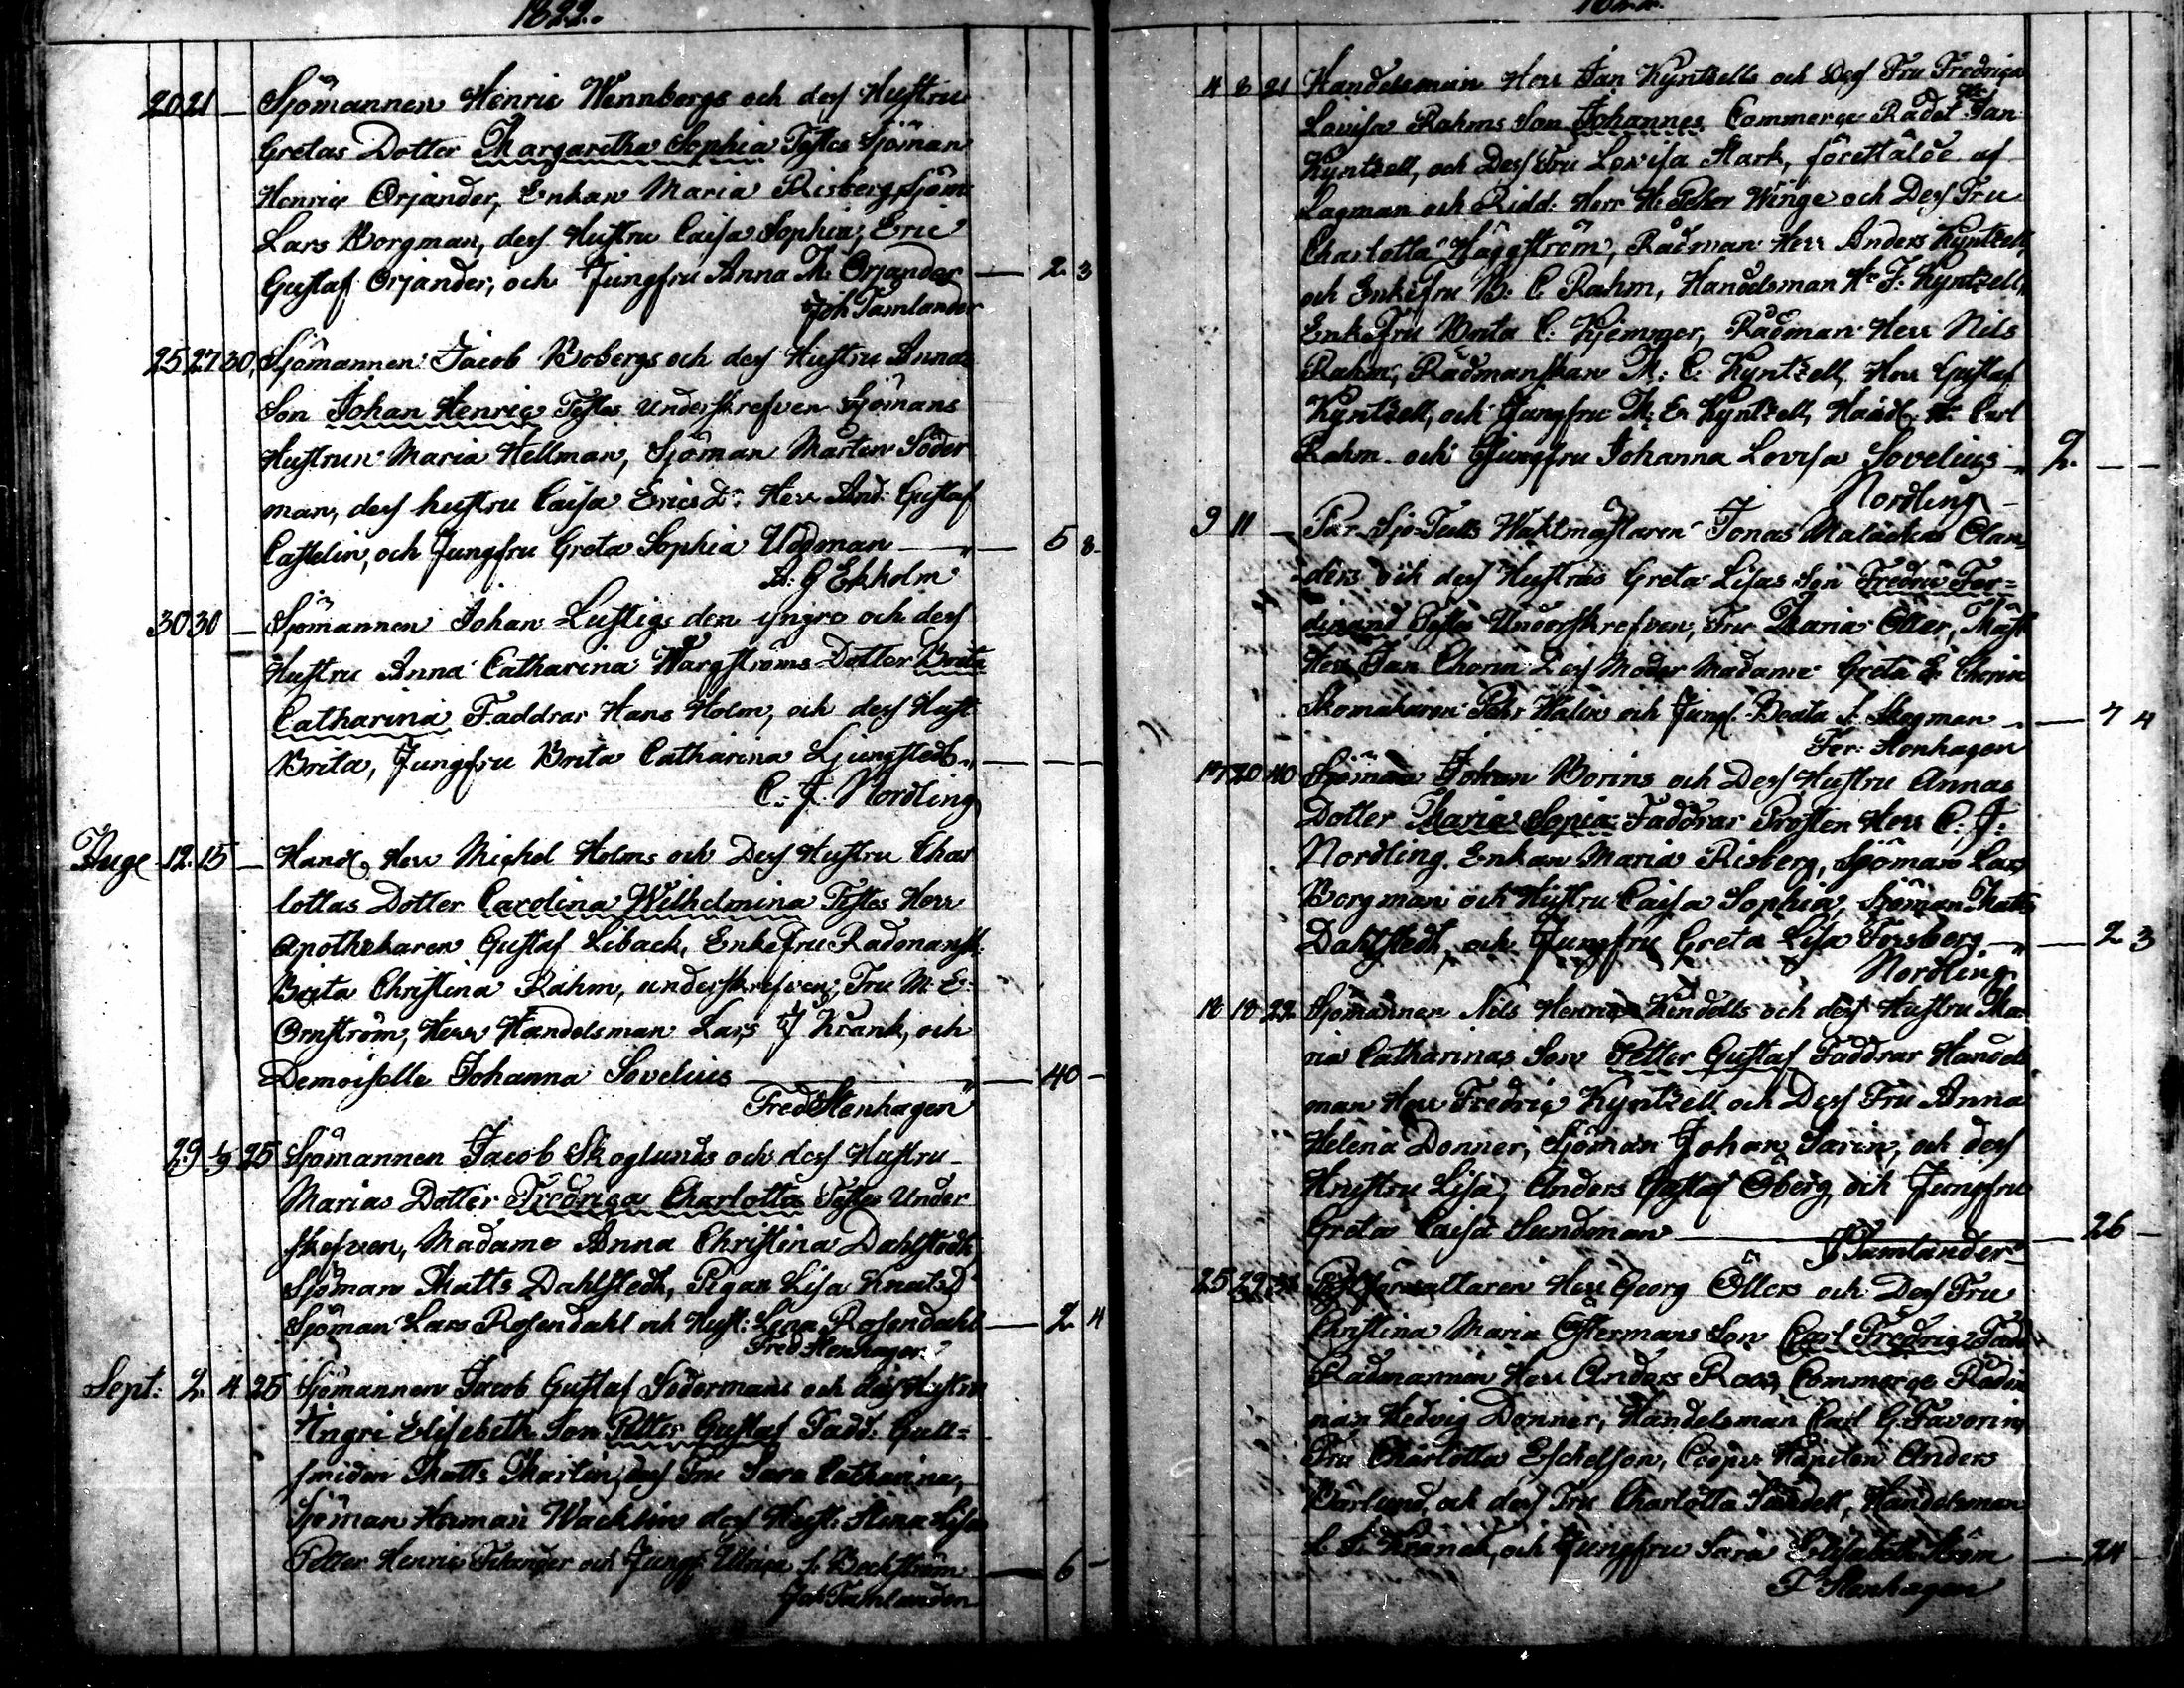 1822.
20 21 — Sjömannen Henric Wennbergs och dess Hustru
Gretas Dotter Margaretha Sophia Testes Sjöman
Henric Orjander, Enkan Maria Risberg, Sjöm:
Lars Borgman, dess Hustru Caisa Sophia, Eric
Gustaf Orjander, och Jungfru Anna M: Orjander — 2 3
Joh Tamlander
25 27 30 Sjömannen Jacob Bobergs och dess Hustru Annas
Son Johan Henric Testes Underskrefven Sjömans
Hustrun Maria Hellman, Sjöman Marten Söder
man, dess hustru Caisa Ericsdr: Herr And: Gustaf
Castelin, och Jungfru Greta Sophia Udgman — 5 8
A: G Ekholm
30 30 — Sjömannen Johan Lustigs den yngre och dess
Hustru Anna Catharina Wargströms Dotter Brita
Catharina Faddrar Hans Holm, och dess Hust
Brita, Jungfru Brita Catharina Ljungstedt — —
C: J. Nordling
Aug 12 15 — Handl Herr Michel Holms och Dess Hustru Char
lottas Dotter Carolina Wilhelmina Testes Herr
Apothekaren Gustaf Liback, Enkefru Rådmansk:
Brita Christina Rahm, underskrefven, Fru M: E:
Ornström, Herr Handelsman Lars J Krank, och
Demoiselle Johanna Sovelius — 40 —
Fred Stenhagen
29 1/9 25 Sjömannen Jacob Skoglunds och dess Hustru
Marias Dotter Fredrica Charlotta Testes Under
skrefven, Madame Anna Christina Dahlstedt,
Sjöman Matts Dahlstedt, Pigan Lisa Knutsd
Sjöman Lars Rosendahl och Hust: Lena Rosendahl — 2 4
Fred Stenhagen
Sept: 2 4 25 Sjömannen Jacob Gustaf Södermans och dess Hustru
Ingri Elisebeth Son Petter Gustaf Fadd: Gull=
smeden Matts Martin, dess Fru Sara Catharina,
Sjöman Herman Wacklin dess Hust: Stina Lisa
Petter Henric och Jungf: Ulrica S. Beckström — 6 —
Joh Tamlander
4 8 21 Handelsman Herr Jan Kyntzells och Dess Fru Fredrica
Lovisa Rahms Son Johannes Commerce Rådet Hr Jan
Kyntzell, och Dess Fru Lovisa Mark, föreställde af
Lagman och Ridd: Herr H: Peher Winge och Dess Fru
Charlotta Häggström, Rådman Herr Anders Kyntzell,
och Enkefru B: C. Rahm, Handelsman Hr F. Kyntzell,
Enk Fru Brita C. Kjemmer, Rådman Herr Nils
Rahm, Rådmanskan M: C. Kyntzell, Herr Gustaf
Kyntzell, och Jungfru M: E. Kyntzell, Handl: Hr Carl
Rahm och Jungfru Johanna Lovisa Sovelius — 2. — —
Nordling
9 11 — Par Sjö-Tulls Waktmästaren Jonas Malackias Olan
ders och dess Hustrus Greta Lisas Son Fredric Fer=
dinand Testes Underskrefven, Fru Maria Öller, Mäst
Herr Jan Chorin Dess Moder Madame Greta E. Chorin
Skomakaren Pehr Walin och Jungf. Beata S. Skogman — 7 4
Fer: Stenhagen
17 20 40 Sjöman Johan Borins och Dess Hustru Annas
Dotter Maria Sopia Faddrar Prosten Herr C: J:
Nordling. Enkan Maria Risberg, Sjöman Lars
Borgman och Hustru Caisa Sophia, Sjöman Matts
Dahlstedt, och Jungfru Greta Lisa Forsberg — 2 3
Nordling
18 18 22 Sjömannen Nils Henric Kindells och dess Hustru Ma
ria Catharinas Son Petter Gustaf Faddrar Handels
man Herr Fredric Kyntzell och Dess Fru Anna
Helena Donner, Sjöman Johan Sarin, och dess
Hustru Lisa, Anders Gustaf Öberg, och Jungfru
Greta Caisa Sundman — 26 —
J Tamlander
25 29 Postförvaltaren Herr Georg Öllers och Dess Fru
Christina Maria Östermans Son Carl Fredric Fadd
Rådmannen Herr Anders Roos, Commerge Rådin
nan Hedvig Donner, Handelsman Carl G. Favorin,
Fru Charlotta Eschelson, Coopv: Kapiten Anders
Barlund, och dess Fru Charlotta Sandell, Handelsman
L. J. Kranck, och Jungfru Sara Elisabeth Ström — 24 —
F Stenhagen